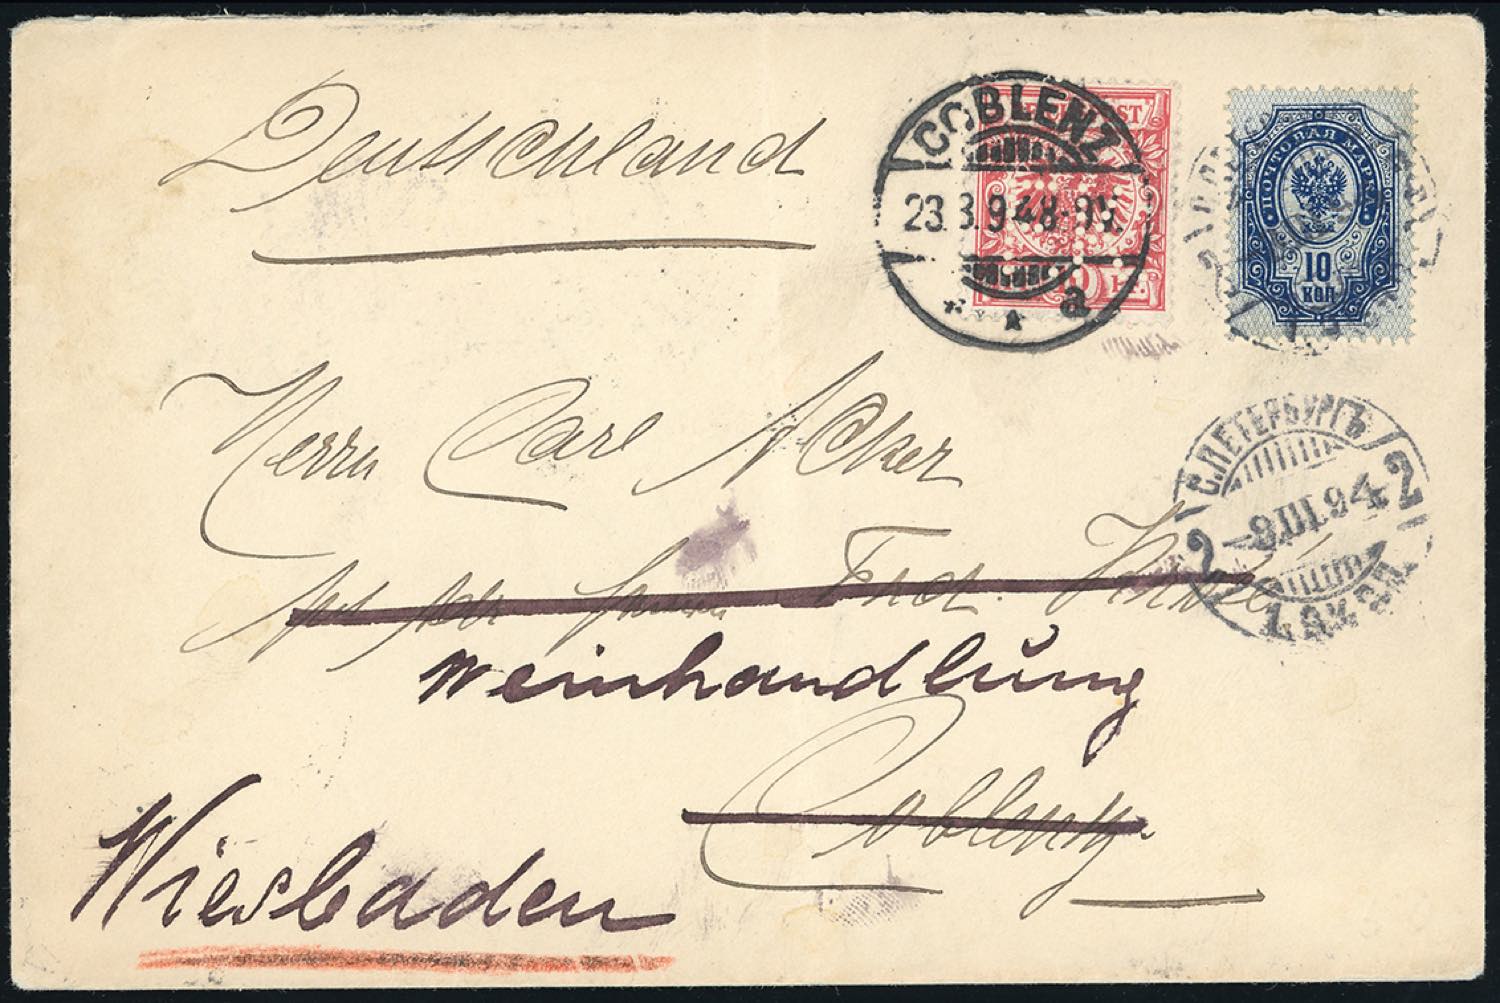 Deutschland
COBLENZ
23.3.94 8-9V.
* * a
ST
PF.
ПОЧТОВАЯ МАРКА
10
КОП
Herrn Carl Acker
Weinhandlung
Coblenz
Wiesbaden
С.ПЕТЕРБУРГЪ
2 -9.III.94 2
1.ЭКСП.